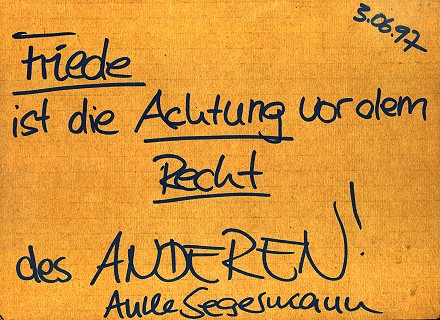 3.06.97
Friede
ist die Achtung vor dem
Recht
des ANDEREN!
Anke Segermann